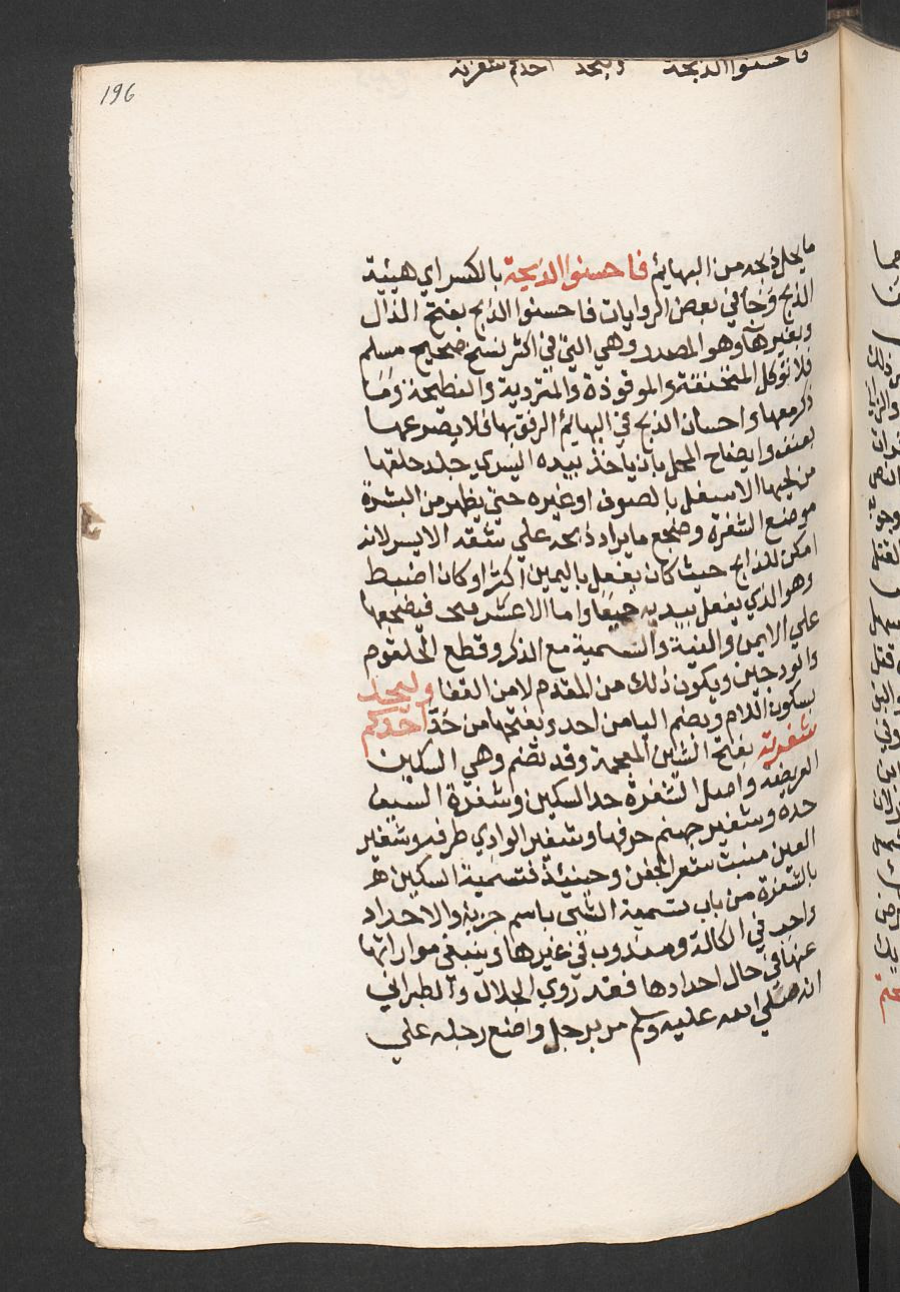 فاحسنوا الذبحة وليحد احدكم شفرته
196
ما يحل ذبحه من البهايم فاحسنوا الذبحة بالكسر اي هيئية
الذبح وجا في بعض الروايات فاحسنوا الذبح بفتح الذال
وبغير هآ وهو المصدر وهي التي في اكثر نسخ صحيح مسلم
فلا توكل المنخنقة والموقوذة والمتردية والنطيحة وما
ذكر معها واحسان الذبح في البهايم الرفق بها فلا يصرعها
بعنف وايضاح المحل بان ياخذ بيده اليسري جلد حلقها
من لحيها الاسفل بالصوف او غيره حتي يظهر من البشرة
موضع الشفرة وضجع ما يراد ذبحه علي شقه الايسر لانه
امكن للذابح حيث كان يفعل باليمين اكثر او كان اضبط
وهو الذي يفعل بيديه جميعا واما الاعسر فيضجعها
علي الايمن والنية والتسمية مع الذكر وقطع الحلقوم
والودجين ويكون ذلك من المقدم لا من القفا وليحد
بسكون اللام وبضم اليا من احد وبفتحها من حد احدكم
شفرته بفتح الشين المعجمة وقد تضم وهي السكين
العريضه واصل الشفرة حد السكين وشفرة السيف
حده وشفير جهنم حرفها وشفير الوادي طرفه وشفير
العين منبت شعر الجفن وحينيذ فتسمية السكين
بالشفرة من باب تسمية الشي باسم جزيه والاحداد
واجب في الكالة ومندوب في غيرها وينبغي مواراتها
عنها في حال احدادها فقد روي الخلال والطبراني
انه صلي الله عليه وسلم مر برجل واضع رجله علي